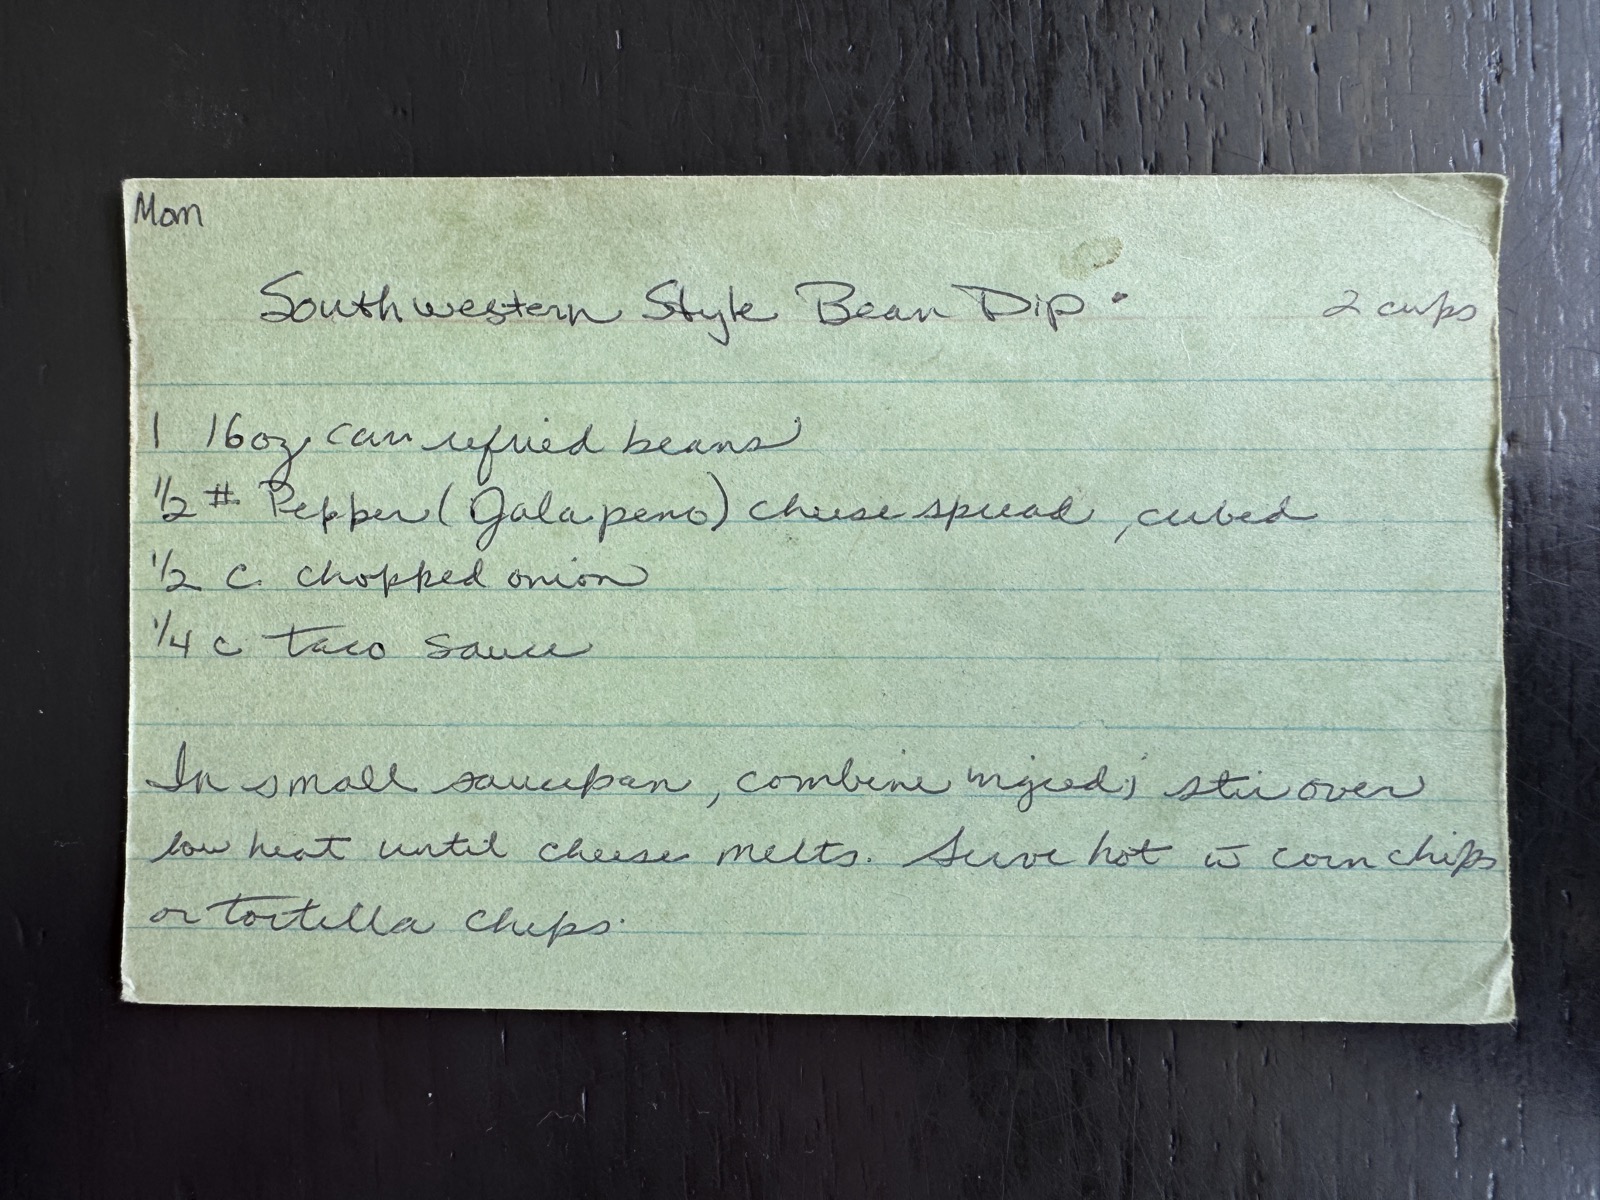 Mom
Southwestern Style Bean Dip 2 cups
1 16oz can refried beans
1/2 # Pepper (Jalapeno) cheese spread, cubed
1/2 c. chopped onion
1/4 c taco sauce
In small saucepan, combine ingred; stir over
low heat until cheese melts. Serve hot w̄ corn chips
or tortilla chips.